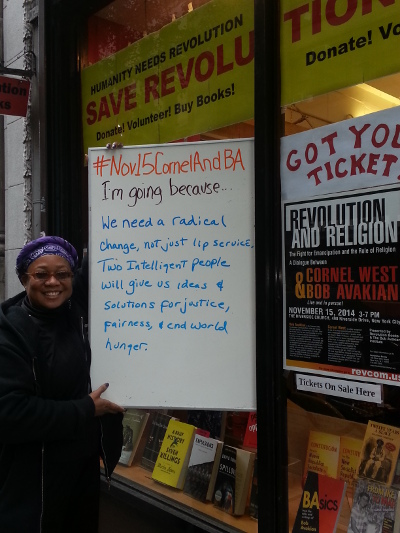 HUMANITY NEEDS REVOLUTION
SAVE REVOLU
Donate! Volunteer! Buy Books!
TION
Donate! Vo
#Nov15CornelAndBA
I'm going because...
We need a radical
change, not just lip service.
Two Intelligent people
will give us ideas &
solutions for justice,
fairness, & end world
hunger.
GOT YOU
TICKET
REVOLUTION
AND RELIGION
The Fight for Emancipation and the Role of Religion
A Dialogue Between
CORNEL WEST
& BOB AVAKIAN
NOVEMBER 15, 2014 3-7 PM
revcom.us
Tickets On Sale Here
BAsics